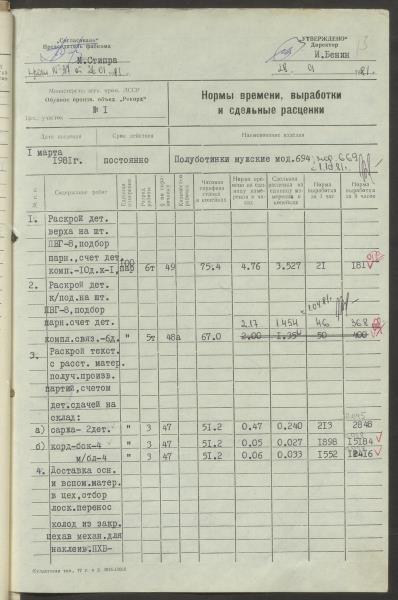 „Согласовано"
Председатель фабкома
М.Стипра
„УТВЕРЖДЕНО"
Директор
И.Бенин
Министерство легк. пром. ЛССР
Обувное произв. объед. „Рекорд"
Цех, участок № I
Нормы времени, выработки
и сдельные расценки
Дата введения Срок действия Наименование изделия
I марта
1981г. постоянно Полуботинки мужские мод.694, мод. 669
№ п. п. Содержание работ Единица измерения Разряд работы Количество рабочих Часовая тарифная ставка в копейках Норма времени на единицу измерения в часах Сдельная расценка на единицу измерения в копейках Норма выработки за 1 час Норма выработки за 8 часов
I. Раскрой дет.
верха на шт.
ПВГ-8, подбор
парн., счет дет. 100
комп.-10д. к-I, пар 6т 49 75.4 4.76 3.527 21 181
2. Раскрой дет.
к/под. на шт.
ПВГ-8, подбор
парн. счет дет. 2.17 1.454 46 368
компл.связ.-6д. " 5т 48а 67.0 2.00 50 400
3. Раскрой текст.
с расст. матер.
получ. произв.
партий, счетом
дет. сдачей на
склад:
а) саржа- 2дет. " 3 47 51.2 0.47 0.240 213 2848
б) корд-бок-4 " 3 47 51.2 0.05 0.027 1898 15184
м/бл-4 " 3 47 51.2 0.06 0.033 1552 12416
4. Доставка осн.
и вспом. матер.
в цех, отбор
лоск. перенос
колод из закр.
цехав механ. для
наклеив. ПХВ-